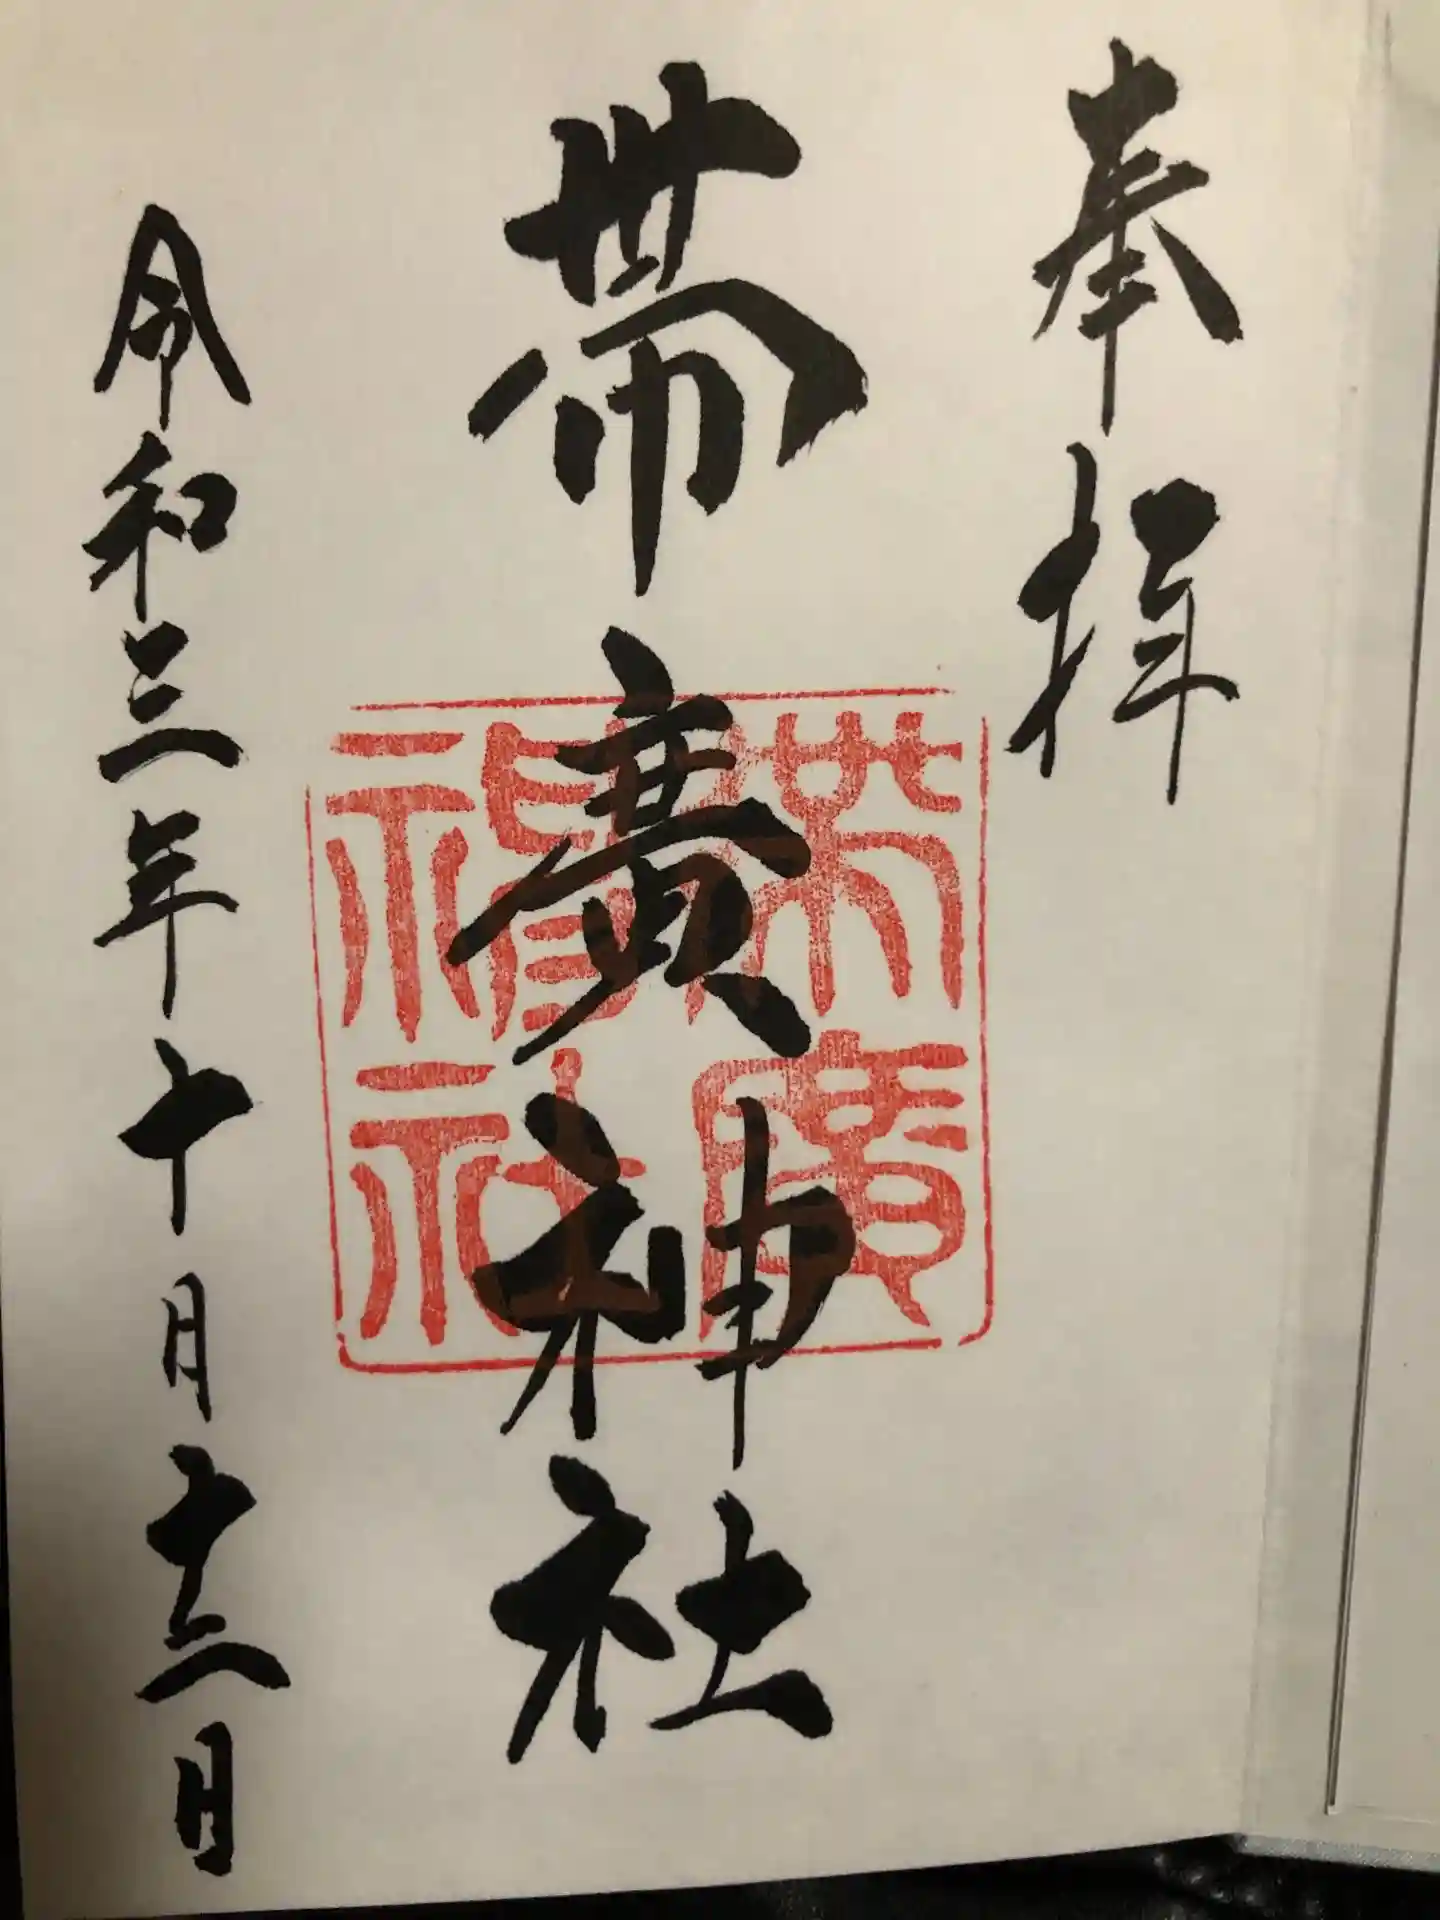 奉拝
帯廣神社
帯廣
神社
令和三年十月十二日